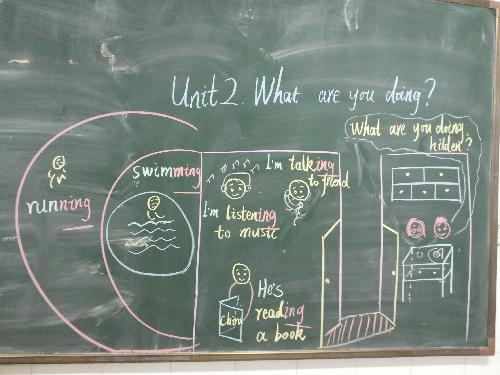 Unit 2. What are you doing?
What are you doing,
hilden?
swimming
running
I'm talking
to friend
I'm listening
to music
He's
reading
a book